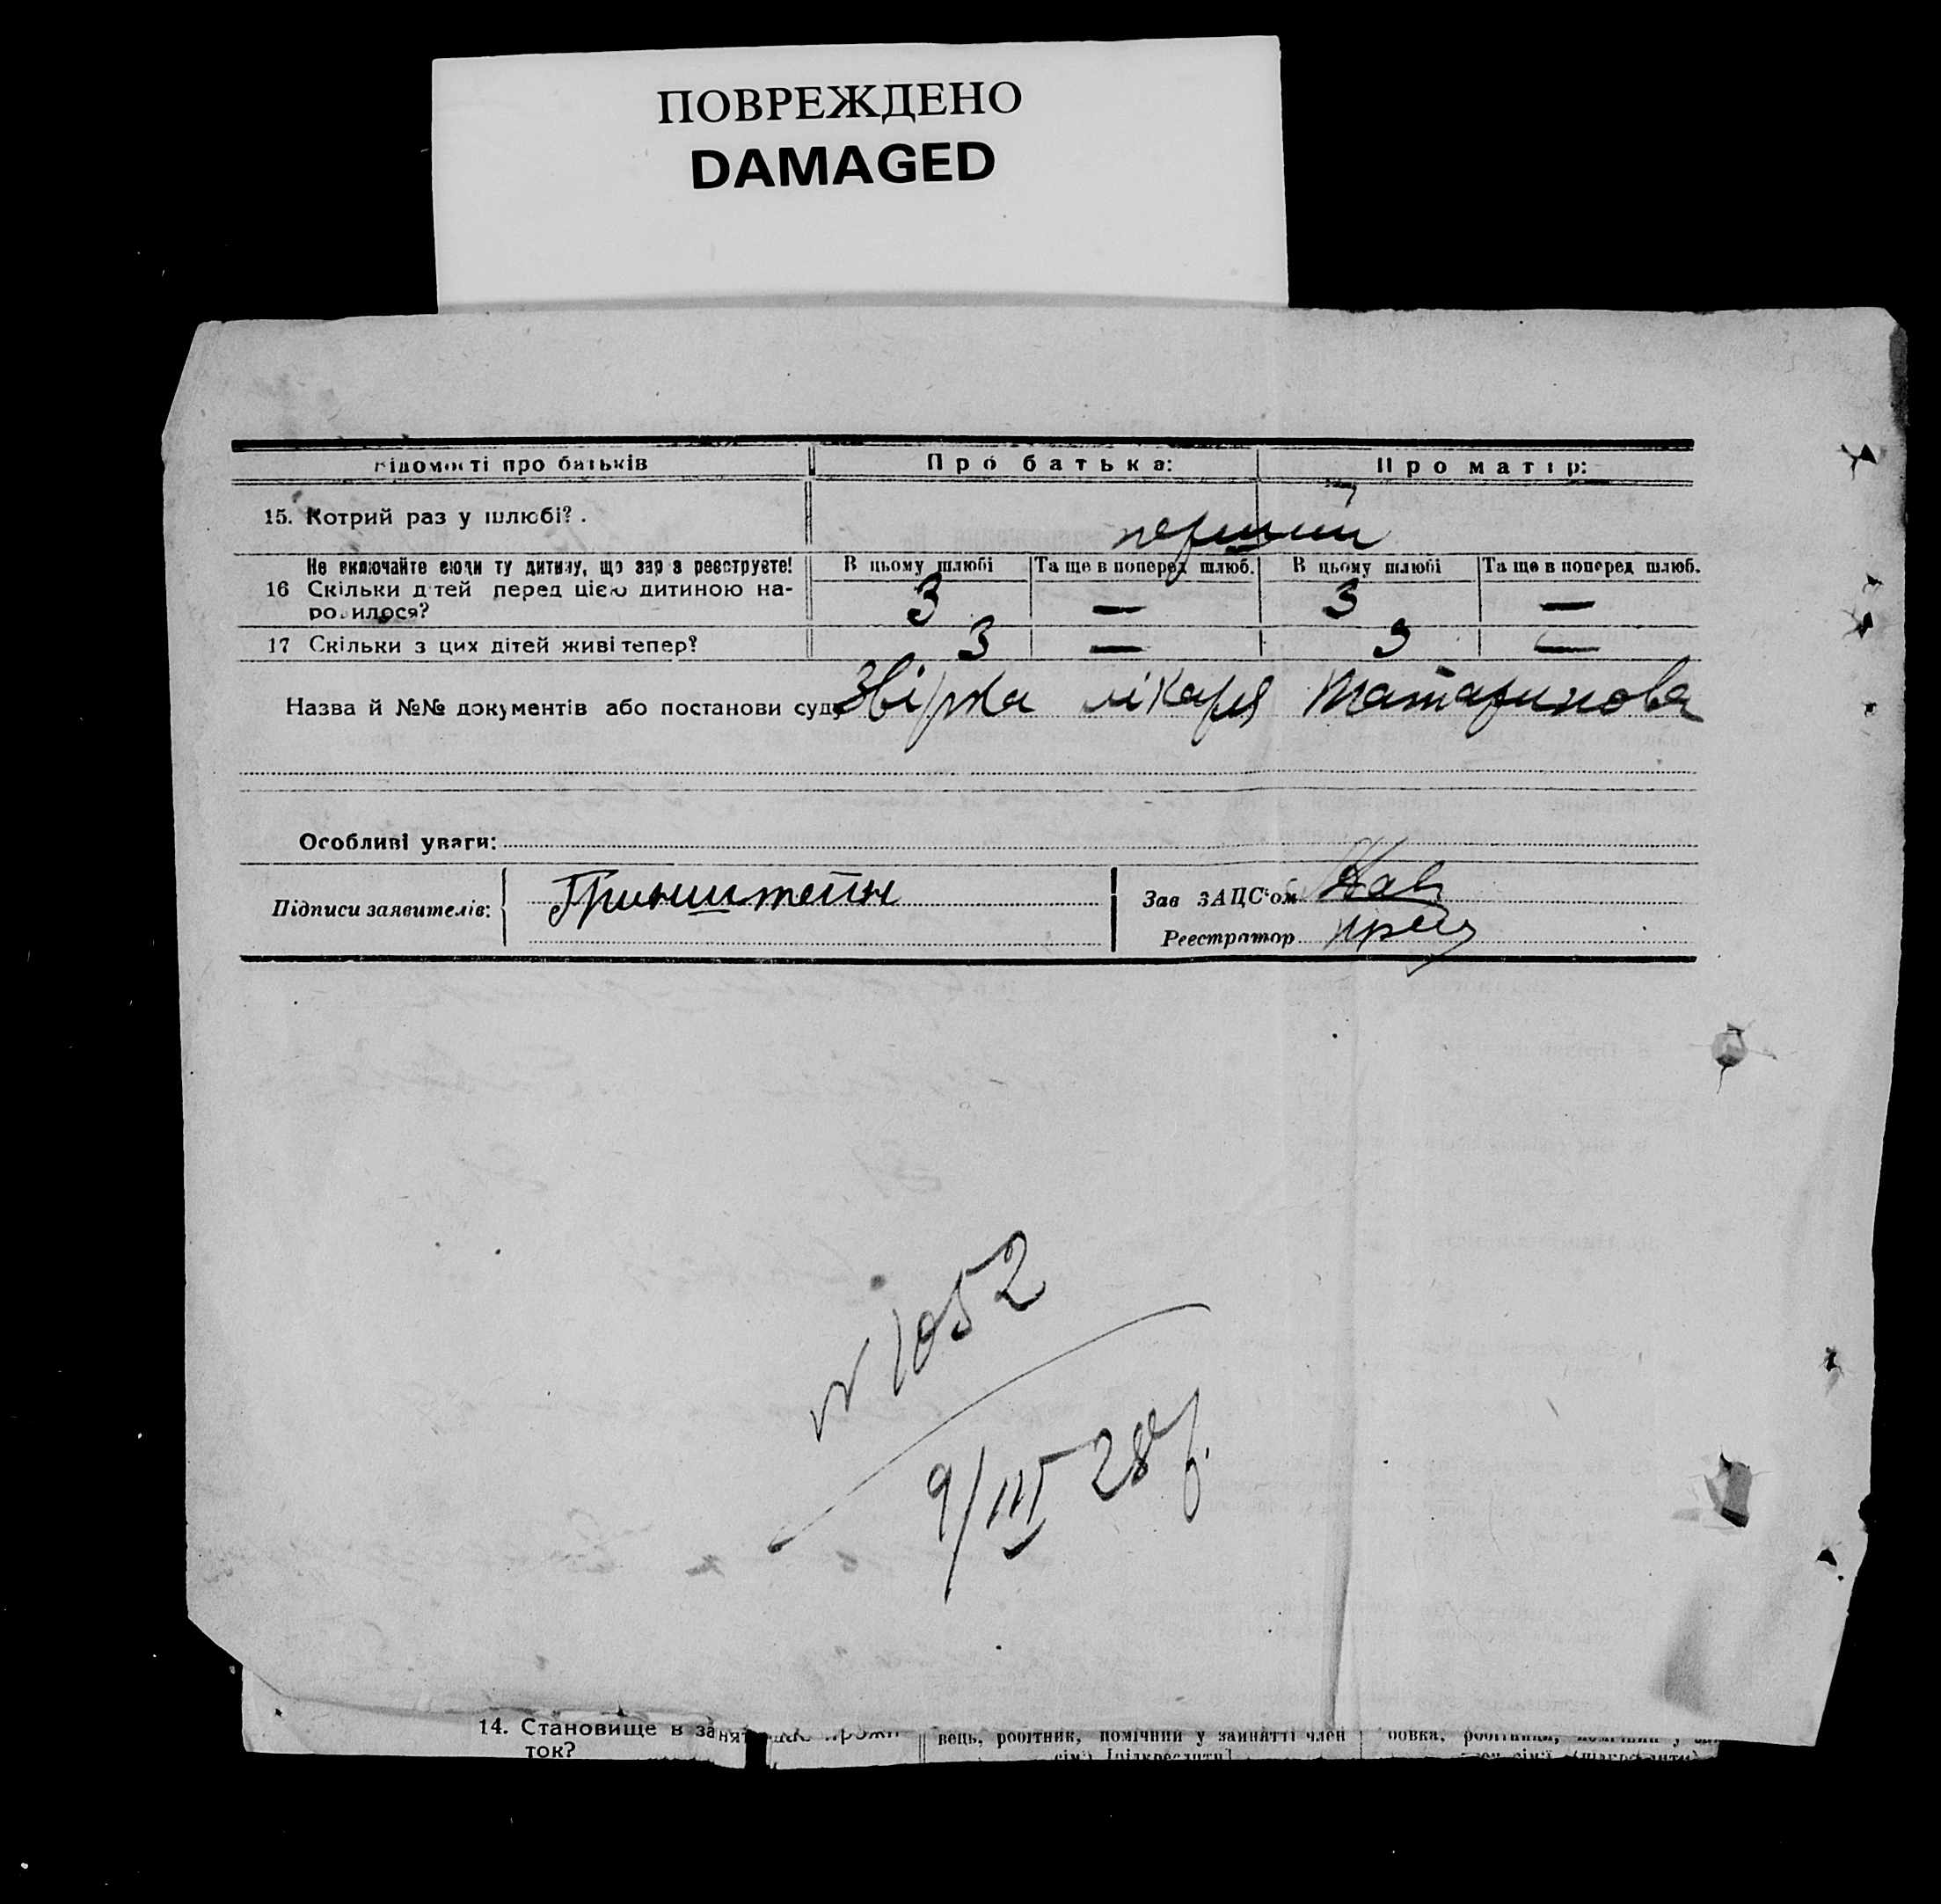 ПОВРЕЖДЕНО
DAMAGED
відомості про батьків Про батька: Про матір:
15. Котрий раз у шлюбі? . перший
Не включайте сюди ту дитину, що зараз реєструєте! В цьому шлюбі Та ще в поперед шлюб. В цьому шлюбі Та ще в поперед шлюб.
16 Скільки дітей перед цією дитиною на- 3 — 3 —
родилося?
17 Скільки з цих дітей живі тепер? 3 — 3 —
Назва й №№ документів або постанови суду Звірка лікаря Татаринова
Особливі уваги:
Підписи заявителів: Гринштейн Зав ЗАЦС'ом
Реєстратор
N 1052
9/III 28 р.
14. Становище в занят вець, робітник, помічний у занятті член
ток? сім'ї [підкреслити]